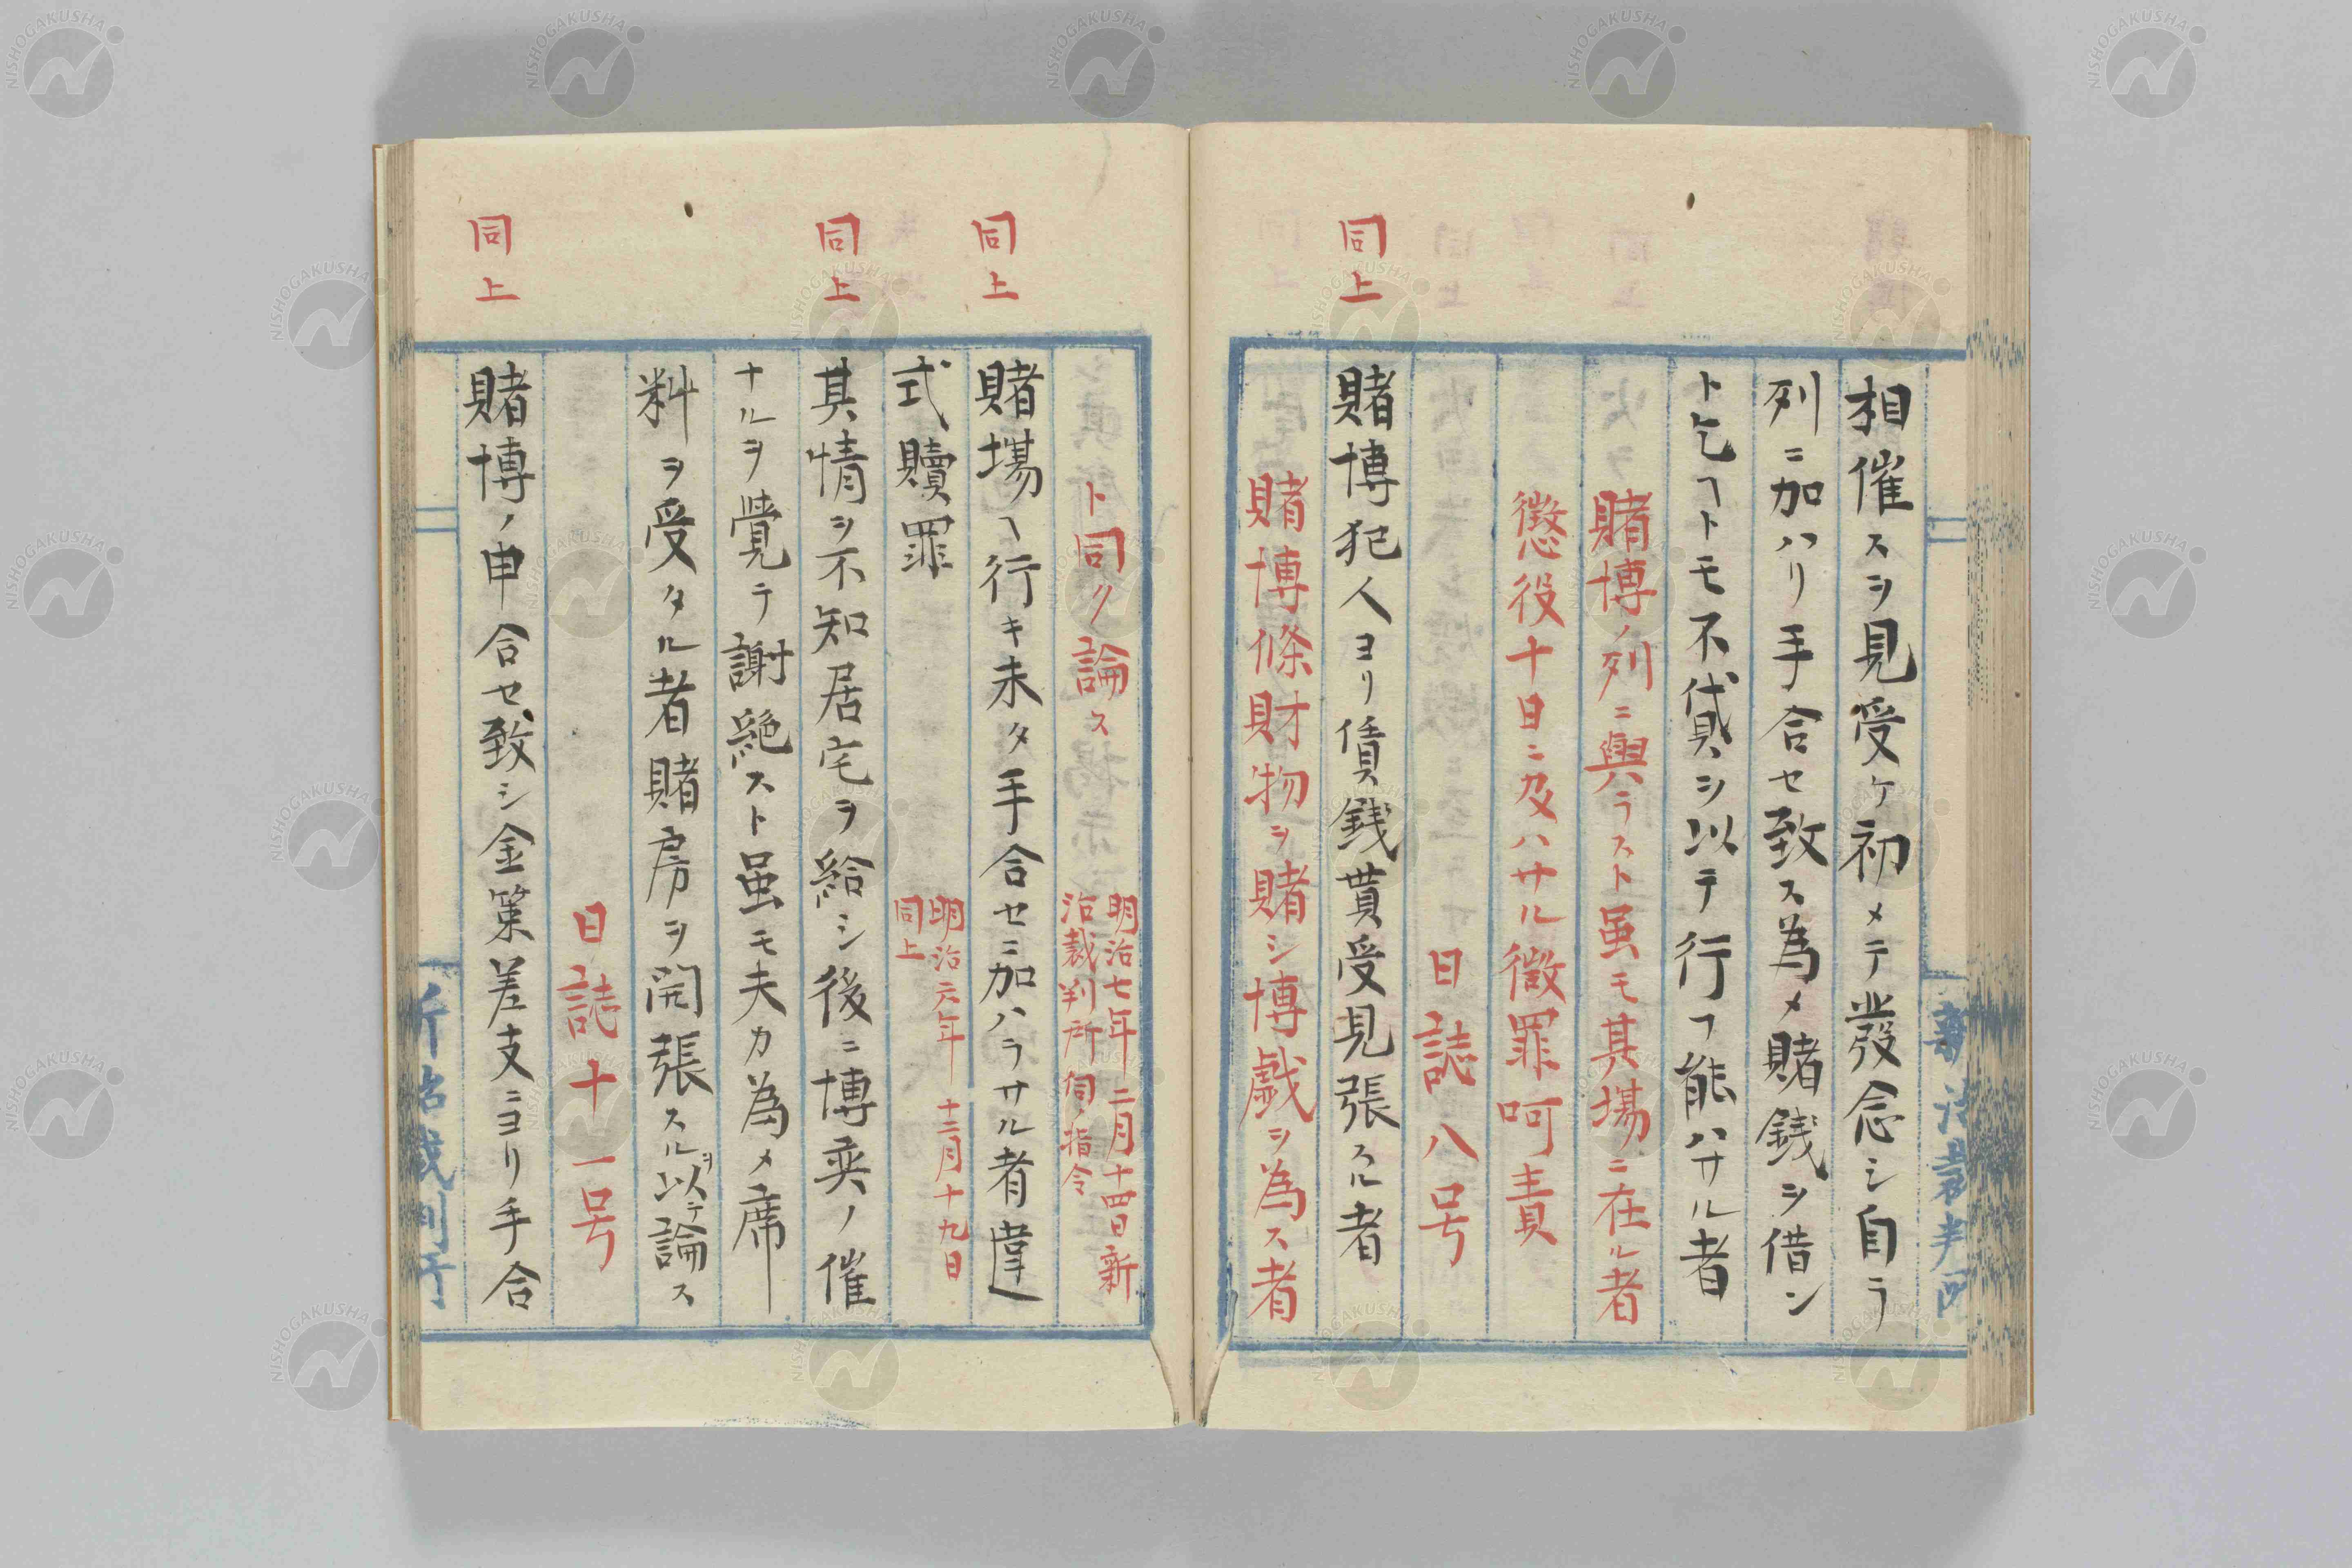 相催スヲ見受ケ初メテ發念シ自ラ
列ニ加ハリ手合セ致ス為メ賭銭ヲ借ン
ト乞フトモ不貸シ以テ行フ能ハサル者
賭博ノ列ニ與ラスト虽モ其場ニ在ル者
懲役十日ニ及ハサル微罪呵責
日誌八号
同上
賭博犯人ヨリ賃銭貰受見張スル者
賭博條財物ヲ賭シ博戯ヲ為ス者
ト同ク論ス
明治七年二月十四日新
治裁判所伺ノ指令
同上
賭場ヘ行キ未タ手合セニ加ハラサル者違
式贖罪
明治六年十二月十九日
同上
同上
其情ヲ不知居宅ヲ給シ後ニ博奕ノ催
ナルヲ覺テ謝絶スト虽モ夫カ為メ席
料ヲ受タル者賭房ヲ開張スルヲ以テ論ス
日誌十一号
同上
賭博ノ申合セ致シ金策差支ニヨリ手合
新治裁判所
NISHOGAKUSHA